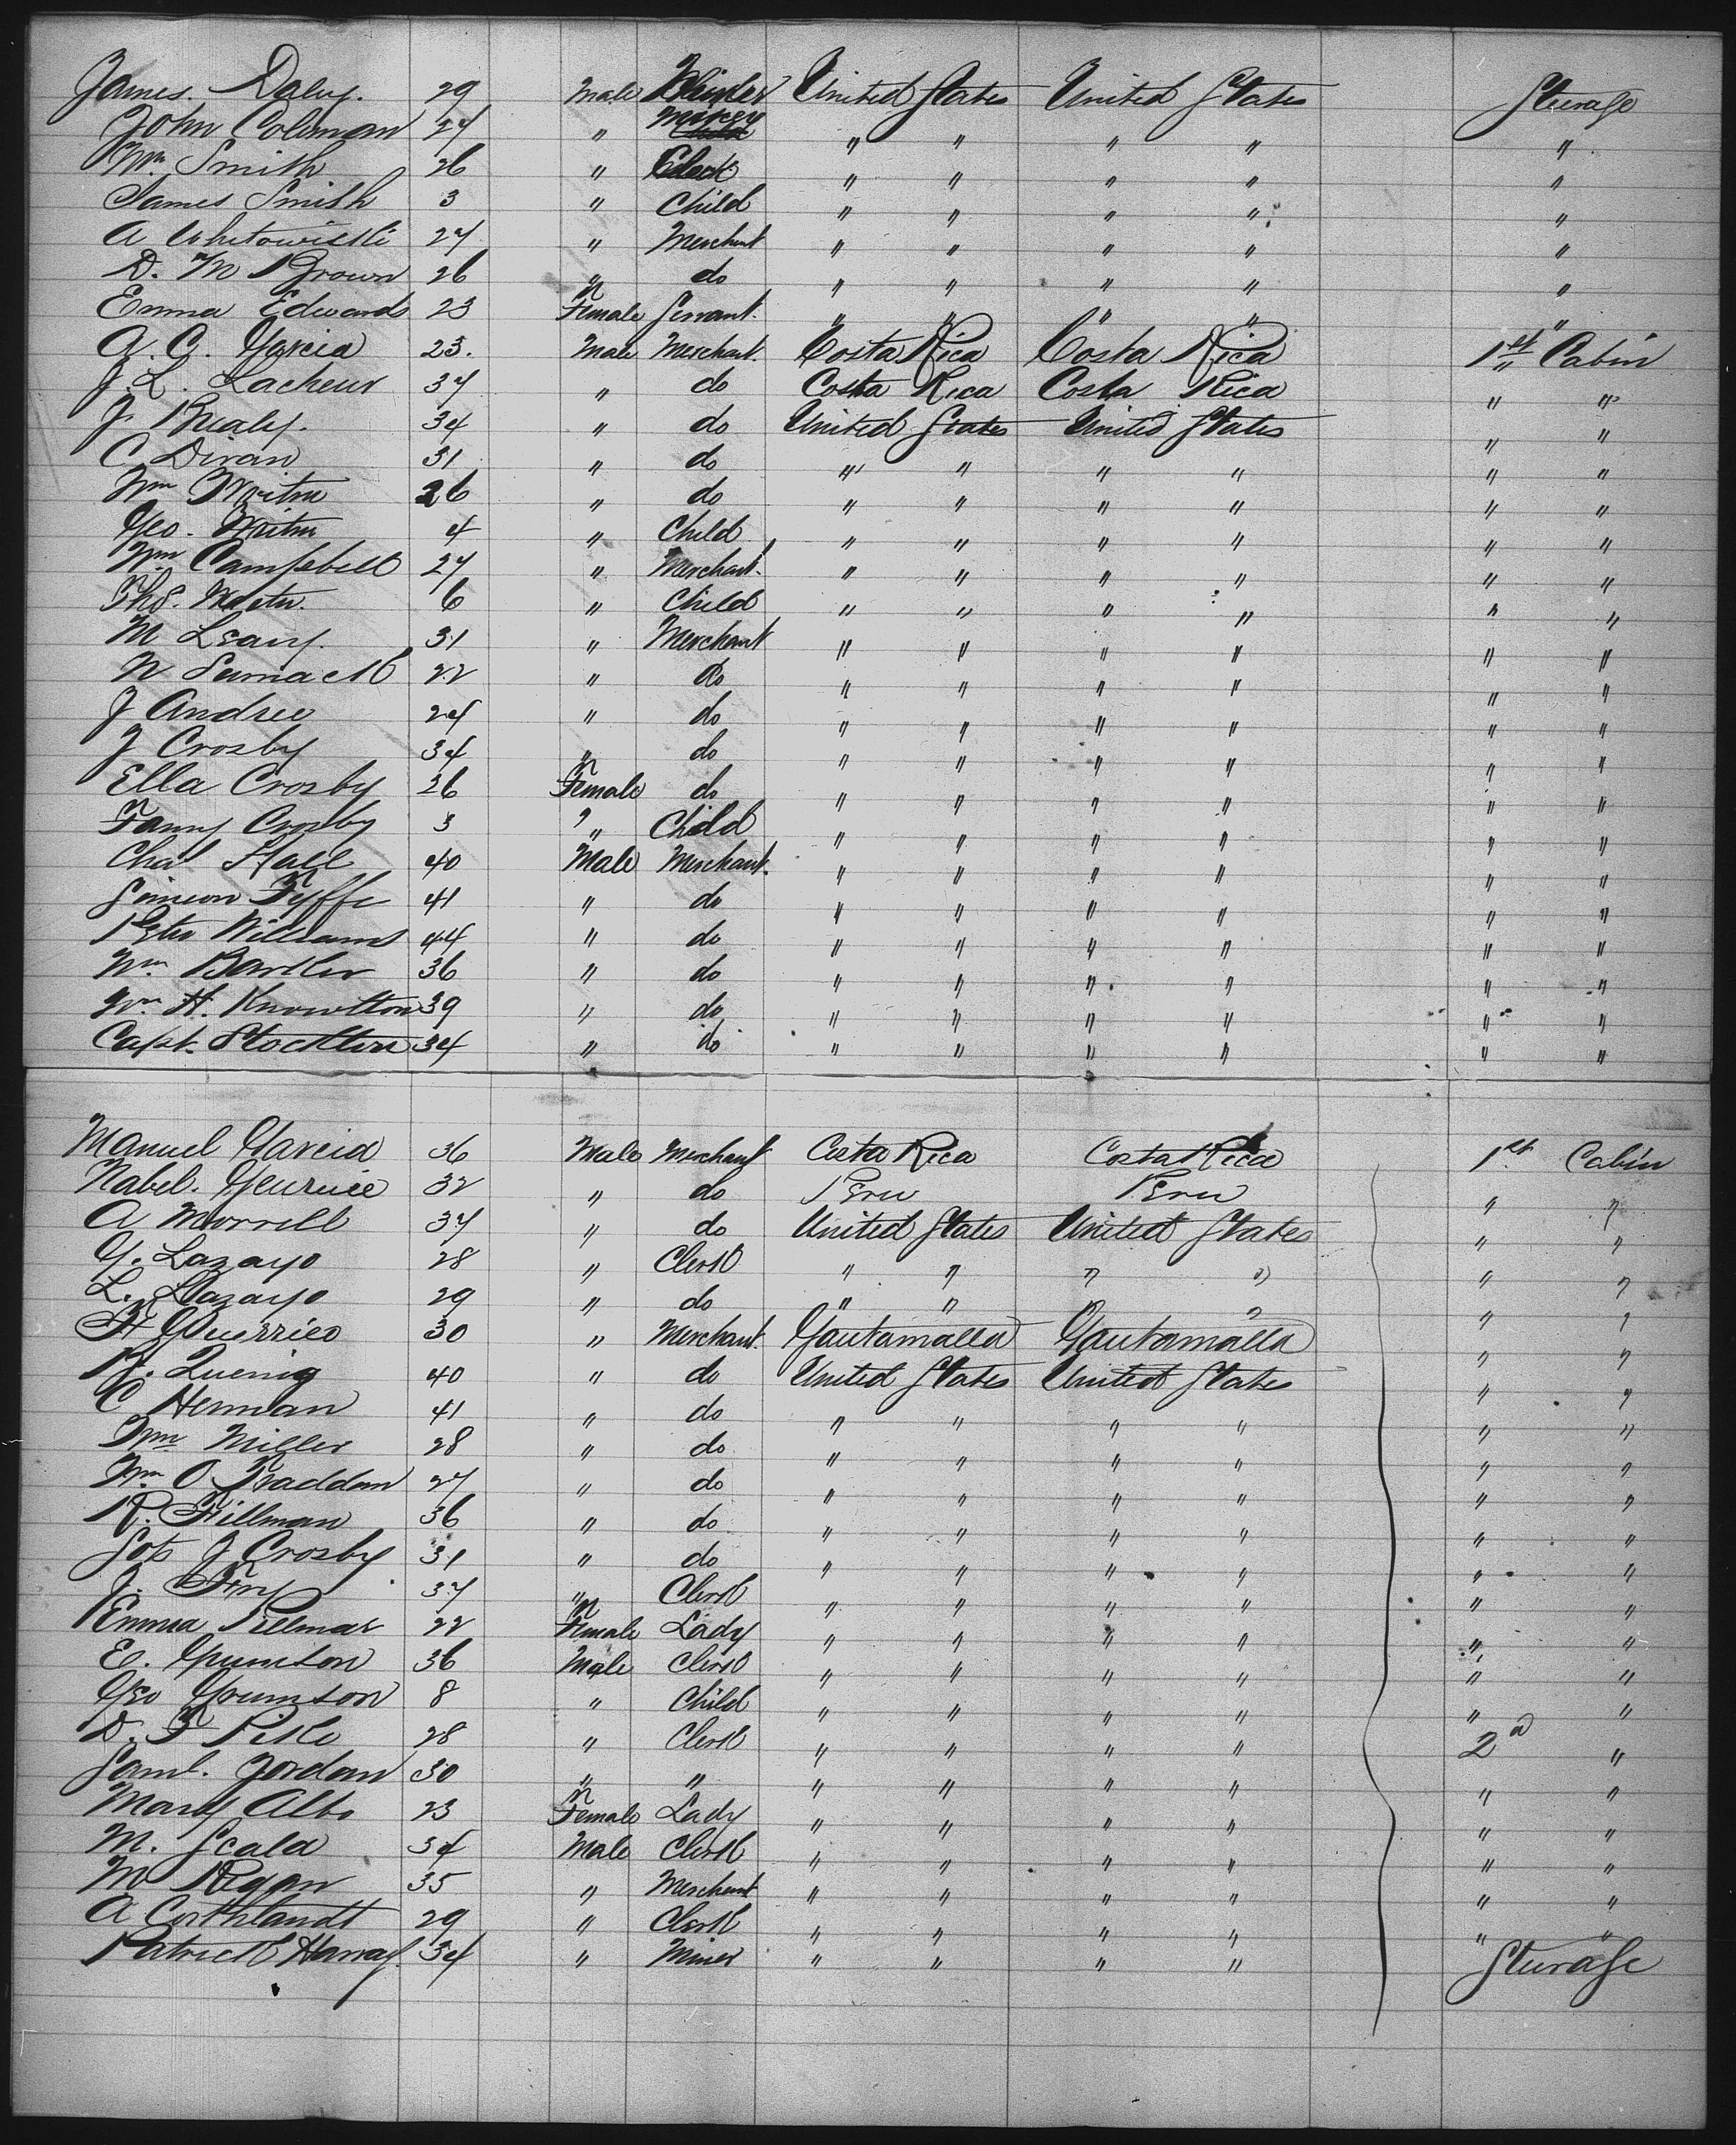 James. Daley. 29 Male United States United States Sterage
John Colman 27 " Miner " " " " "
Wm. Smith 26 " Clerk " " " " "
James Smith 3 " Child " " " " "
A Whitowiski 27 " Merchant " " " " "
D. M Brown 26 " do " " " " "
Emma Edwards 23 Female Servant. " " " " "
A. G. Garcia 23. Male Merchant. Costa Rica Costa Rica 1st Cabin
J. L. Lacheur 37 " do Costa Rica Costa Rica " "
J Brealy. 34 " do United States United States " "
C Divan 31 " do " " " " " "
Wm 26 " do " " " " " "
Geo. 4 " Child " " " " " "
Wm Campbell 27 " Merchant. " " " " " "
Thos. 6 " Child " " " " " "
M Leary. 31 " Merchant " " " " " "
N 22 " do " " " " " "
J Andree 24 " do " " " " " "
J Crosby 34 " do " " " " " "
Ella Crosby 26 Female do " " " " " "
Fanny Crosby 3 " Child " " " " " "
Chas Hall 40 Male Merchant. " " " " " "
Simeon Fyffe 41 " do " " " " " "
Peter Williams 44 " do " " " " " "
Wm. Barker 36 " do " " " " " "
Wm. H. Knowlton 39 " do " " " " " "
Capt. Stockton 34 " do " " " " " "
Manuel Garcia 36 Male Merchant Costa Rica Costa Rica 1st Cabin
Nabel. 32 " do Peru Peru " "
A Morrell 37 " do United States United States " "
G. Lazayo 28 " Clerk " " " " " "
L. Lazayo 29 " do " " " " " "
F Guerrieo 30 " Merchant. Gautamalla Gautamalla " "
R. Quenig 40 " do United States United States " "
C Herman 41 " do " " " " " "
Wm Miller 28 " do " " " " " "
Wm O Braddon 27 " do " " " " " "
R. Fillman 36 " do " " " " " "
J Crosby 31 " do " " " " " "
J. Fry 37 " Clerk " " " " " "
Emma Pillmar 22 Female Lady " " " " " "
E. Grumson 36 Male Clerk " " " " " "
Geo Grumson 8 " Child " " " " " "
D. F Pike 28 " Clerk " " " " 2d "
Saml. Jordan 30 " " " " " " " "
Mary Albo 23 Female Lady " " " " " "
M. Scala 34 Male Clerk " " " " " "
M Regan 35 " Merchant " " " " " "
A Corthlandt 29 " Clerk " " " " " "
Patrick Harray. 34 " Miner " " " " Sterage